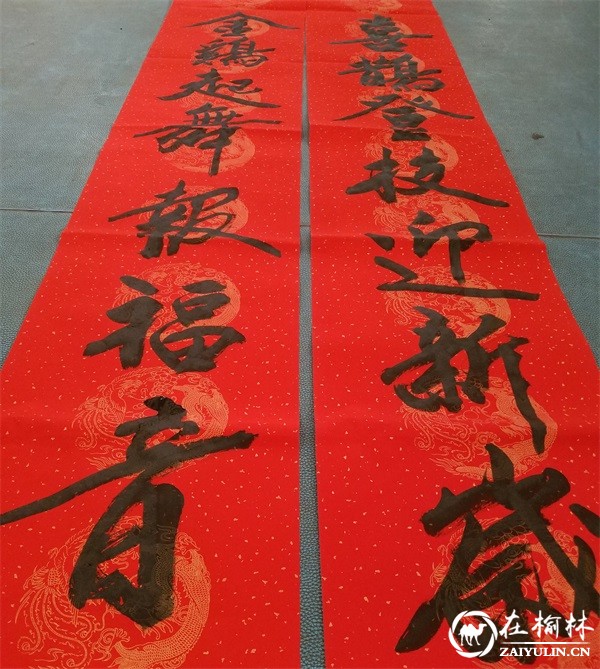 喜鵲登技迎新歲
金鷄起舞報福音
在榆林
ZAIYULIN.CN